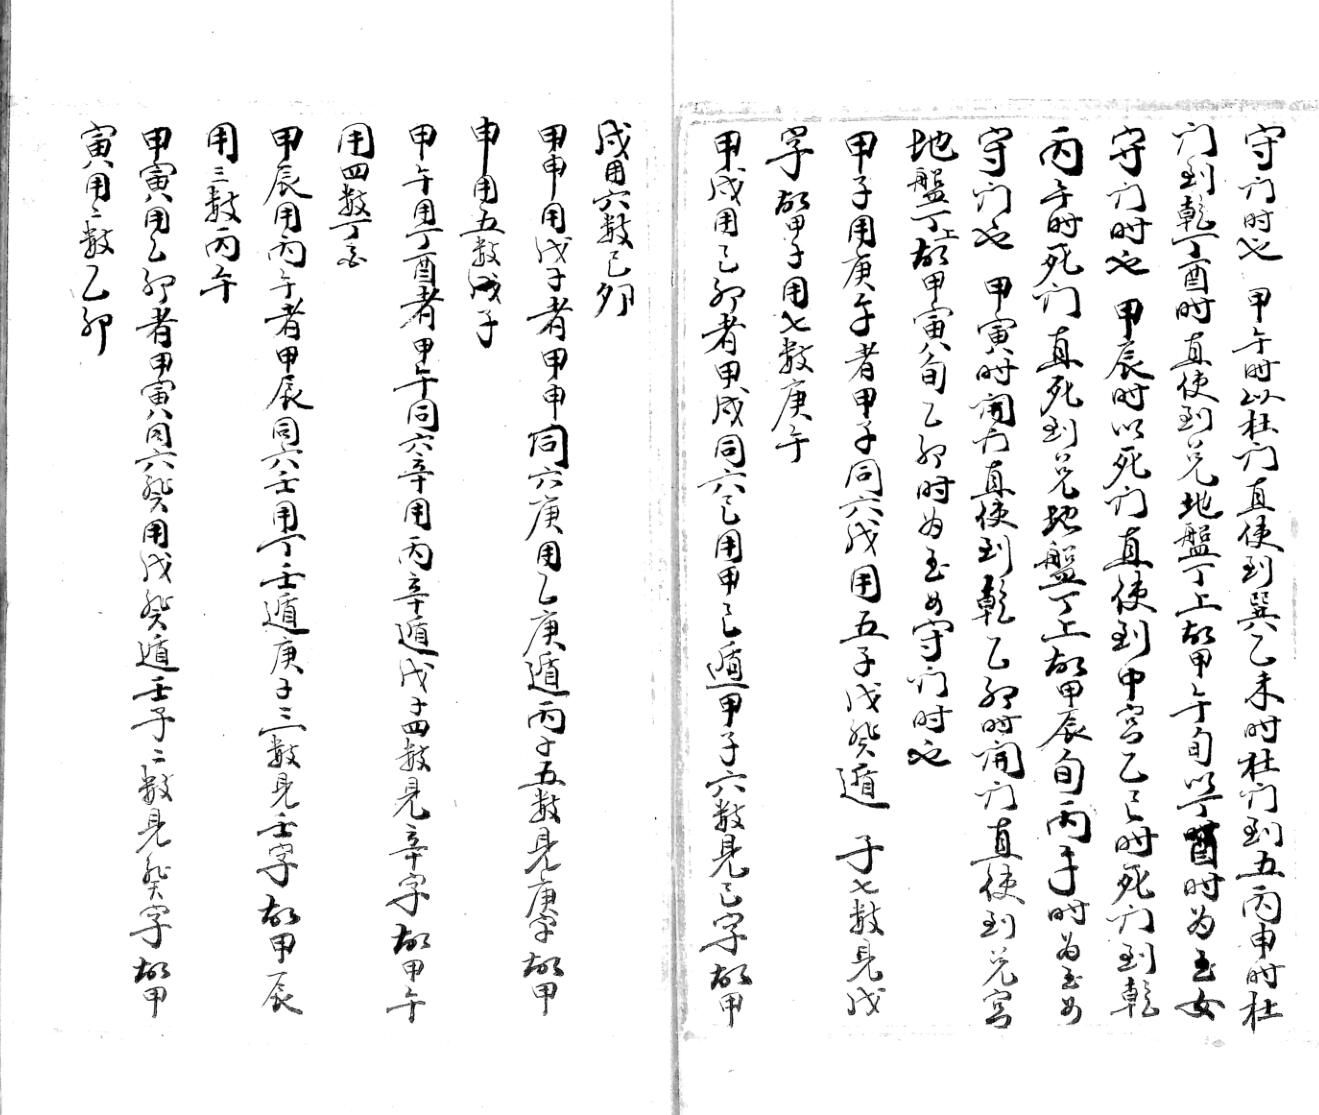 守门时也 甲午时以杜门直使到巽乙未时杜门到五丙申时杜
门到乾丁酉时直使到兑地盘丁上故甲午旬以丁酉时为玉女
守门时也 甲辰时以死门直使到中宫乙巳时死门到乾
丙午时死门直死到兑地盘丁上故甲辰旬丙午时为玉女
守门也 甲寅时開门直使到乾乙卯时開门直使到兑宫
地盤丁上故甲寅旬乙卯时为玉女守门时也
甲子用庚午者甲子同六戊用五子戊癸遁 子七数見戊
字故甲子用七数庚午
甲戌用己卯者甲戌同六己用甲己遁甲子六数見己字故甲
戌用六数己卯
甲申用戊子者甲申同六庚用乙庚遁丙子五数見庚字故甲
申用五数戊子
甲午用丁酉者甲午同六辛用丙辛遁戊子四数見辛字故甲午
用四数丁酉
甲辰用丙午者甲辰同六壬用丁壬遁庚子三数見壬字故甲辰
用三数丙午
甲寅用乙卯者甲寅同六癸用戊癸遁壬子二数見癸字故甲
寅用二数乙卯